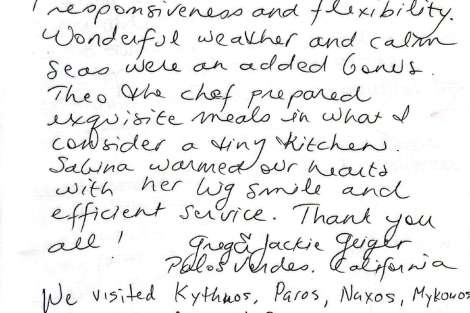 responsiveness and flexibility.
Wonderful weather and calm
seas were an added bonus.
Theo the chef prepared
exquisite meals in what I
consider a tiny kitchen.
Sabina warmed our hearts
with her big smile and
efficient service. Thank you
all!
Greg & Jackie Geiger
Palos Verdes, California
We visited Kythnos, Paros, Naxos, Mykonos